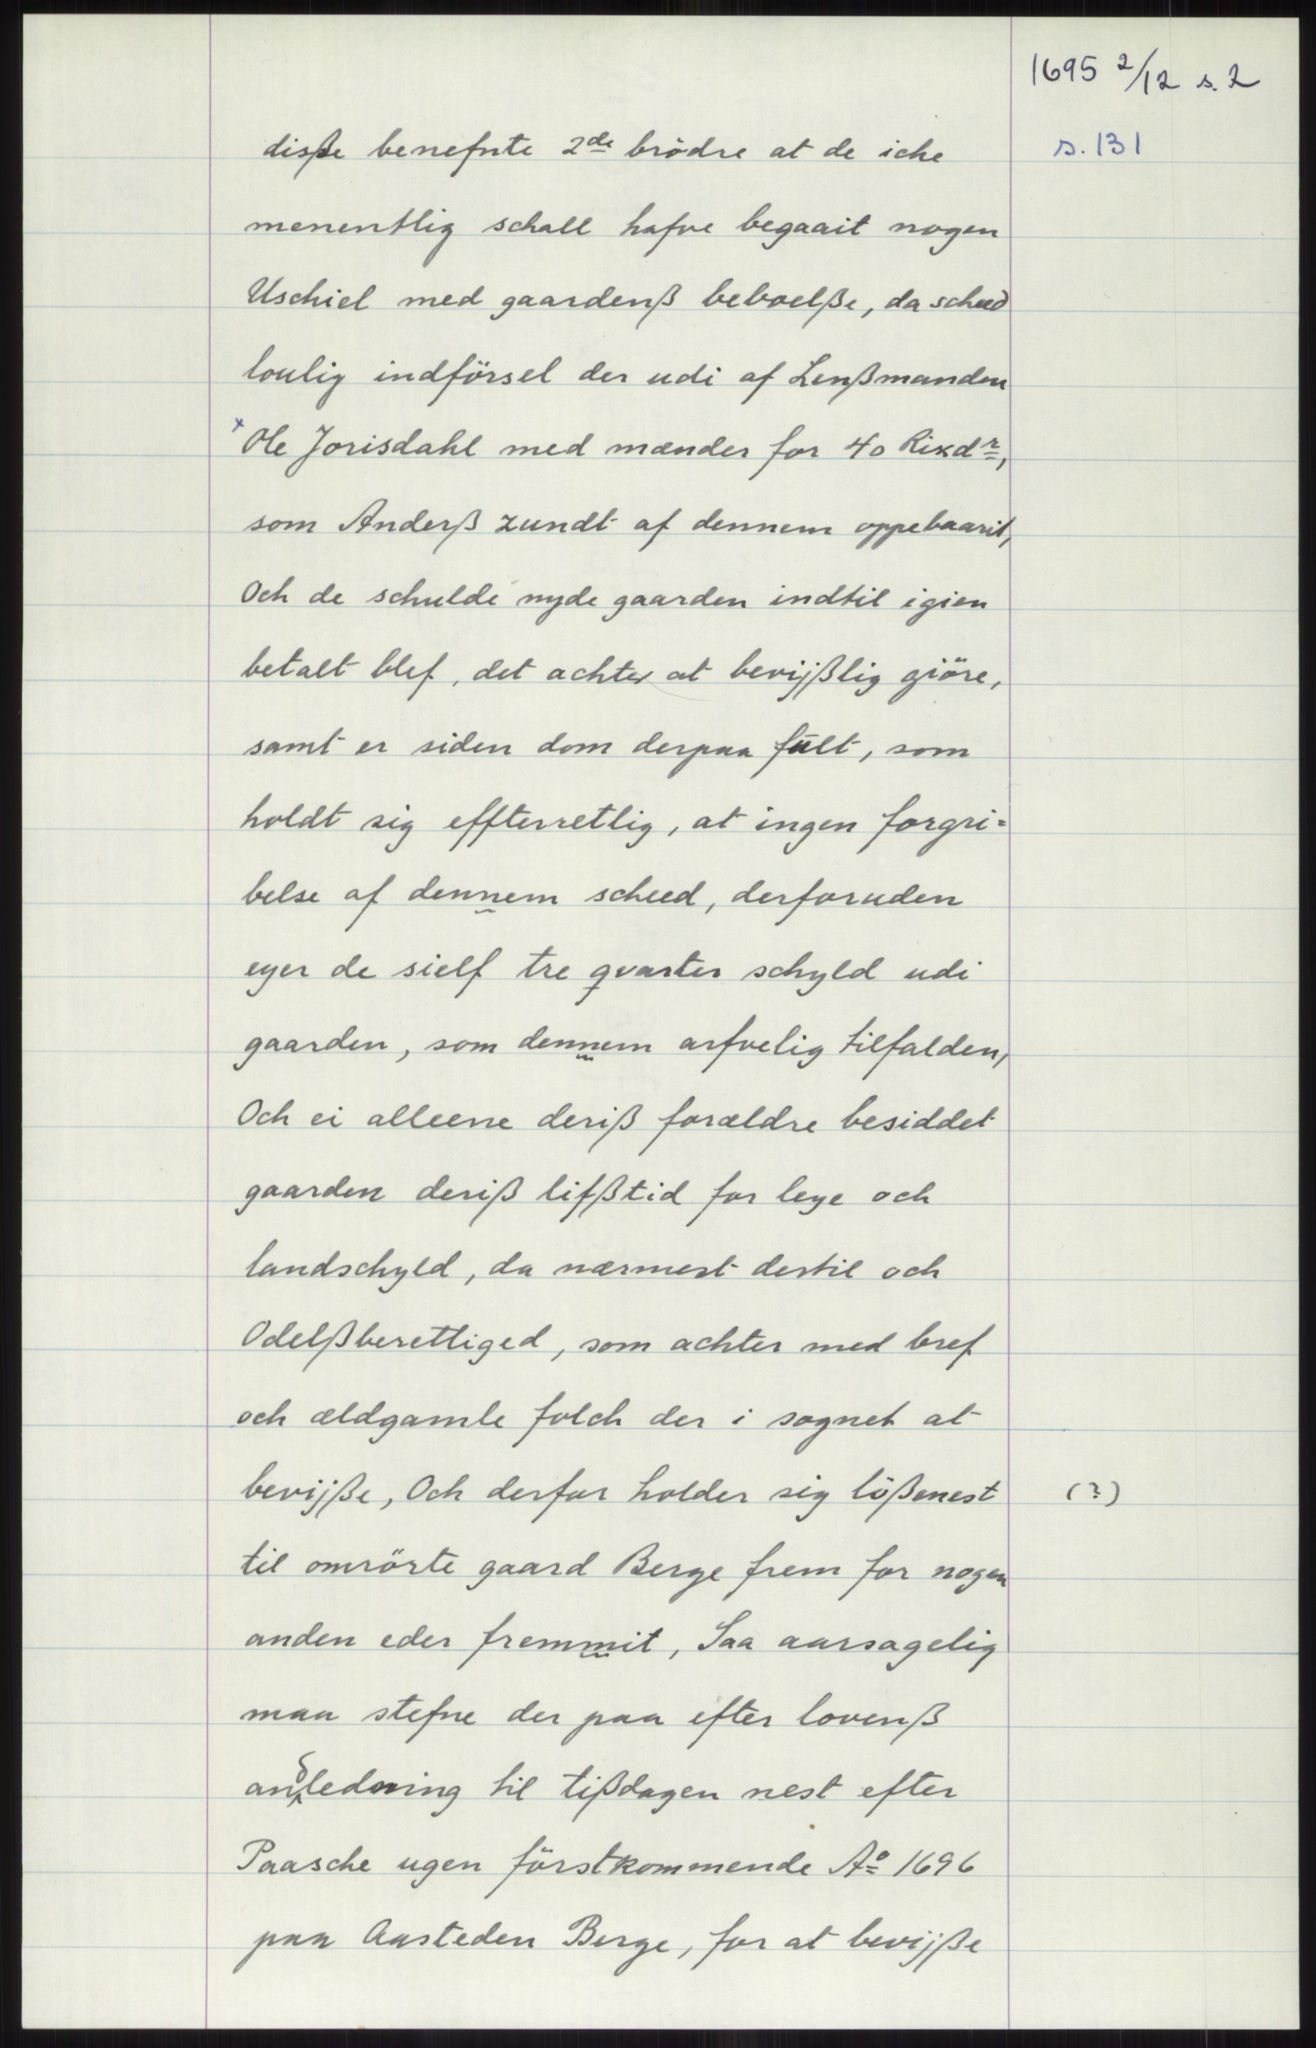 1695 2/12 s. 2
s. 131
disße benefnte 2de brödre at de icke
menentlig schall hafve begaait nogen
Uschiel med gaardenß beboelße, da scheed
loulig indförsel der udi af Lenßmanden
x Ole Jorisdahl med mænder for 40 Rixdr,
som Anderß zundt af dennem oppebaarit,
Och de schulde nyde gaarden indtil igien
betalt blef, det achter at bevijßlig giöre,
samt er siden dom derpaa fult, som
holdt sig effterretlig, at ingen forgri=
belse af dennem scheed, derforuden
eyer de sielf tre qvarter schyld udi
gaarden, som dennem arfvelig tilfalden,
Och ei alleene deriß forældre besiddet
gaarden deriß lifßtid for leye och
landschyld, da nærmest dertil och
Odelßberettiged, som achter med bref
och ældgamle folch der i sognet at
bevijße, Och derfor holder sig lößenest (?)
til omrörte gaard Berge frem for nogen
anden eder fremmit, Saa aarsagelig
maa stefne der paa efter lovenß
andledning til tißdagen nest efter
Paasche ugen förstkommende Ao 1696
paa Aasteden Berge, for at bevijße